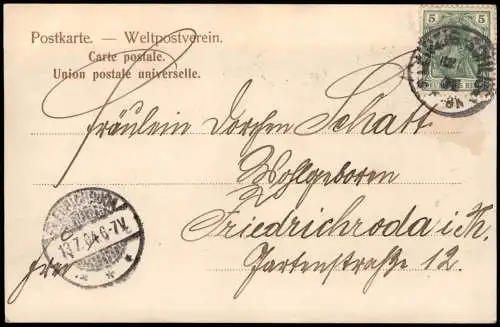 Postkarte. — Weltpostverein.
Carte postale.
Union postale universelle.
5 5
Fräulein Dorchen Schatt
Wohlgeboren
Friedrichroda i. Th.
Gartenstraße 12.
FRIEDRICHRODA
13.7.04.6-7N.